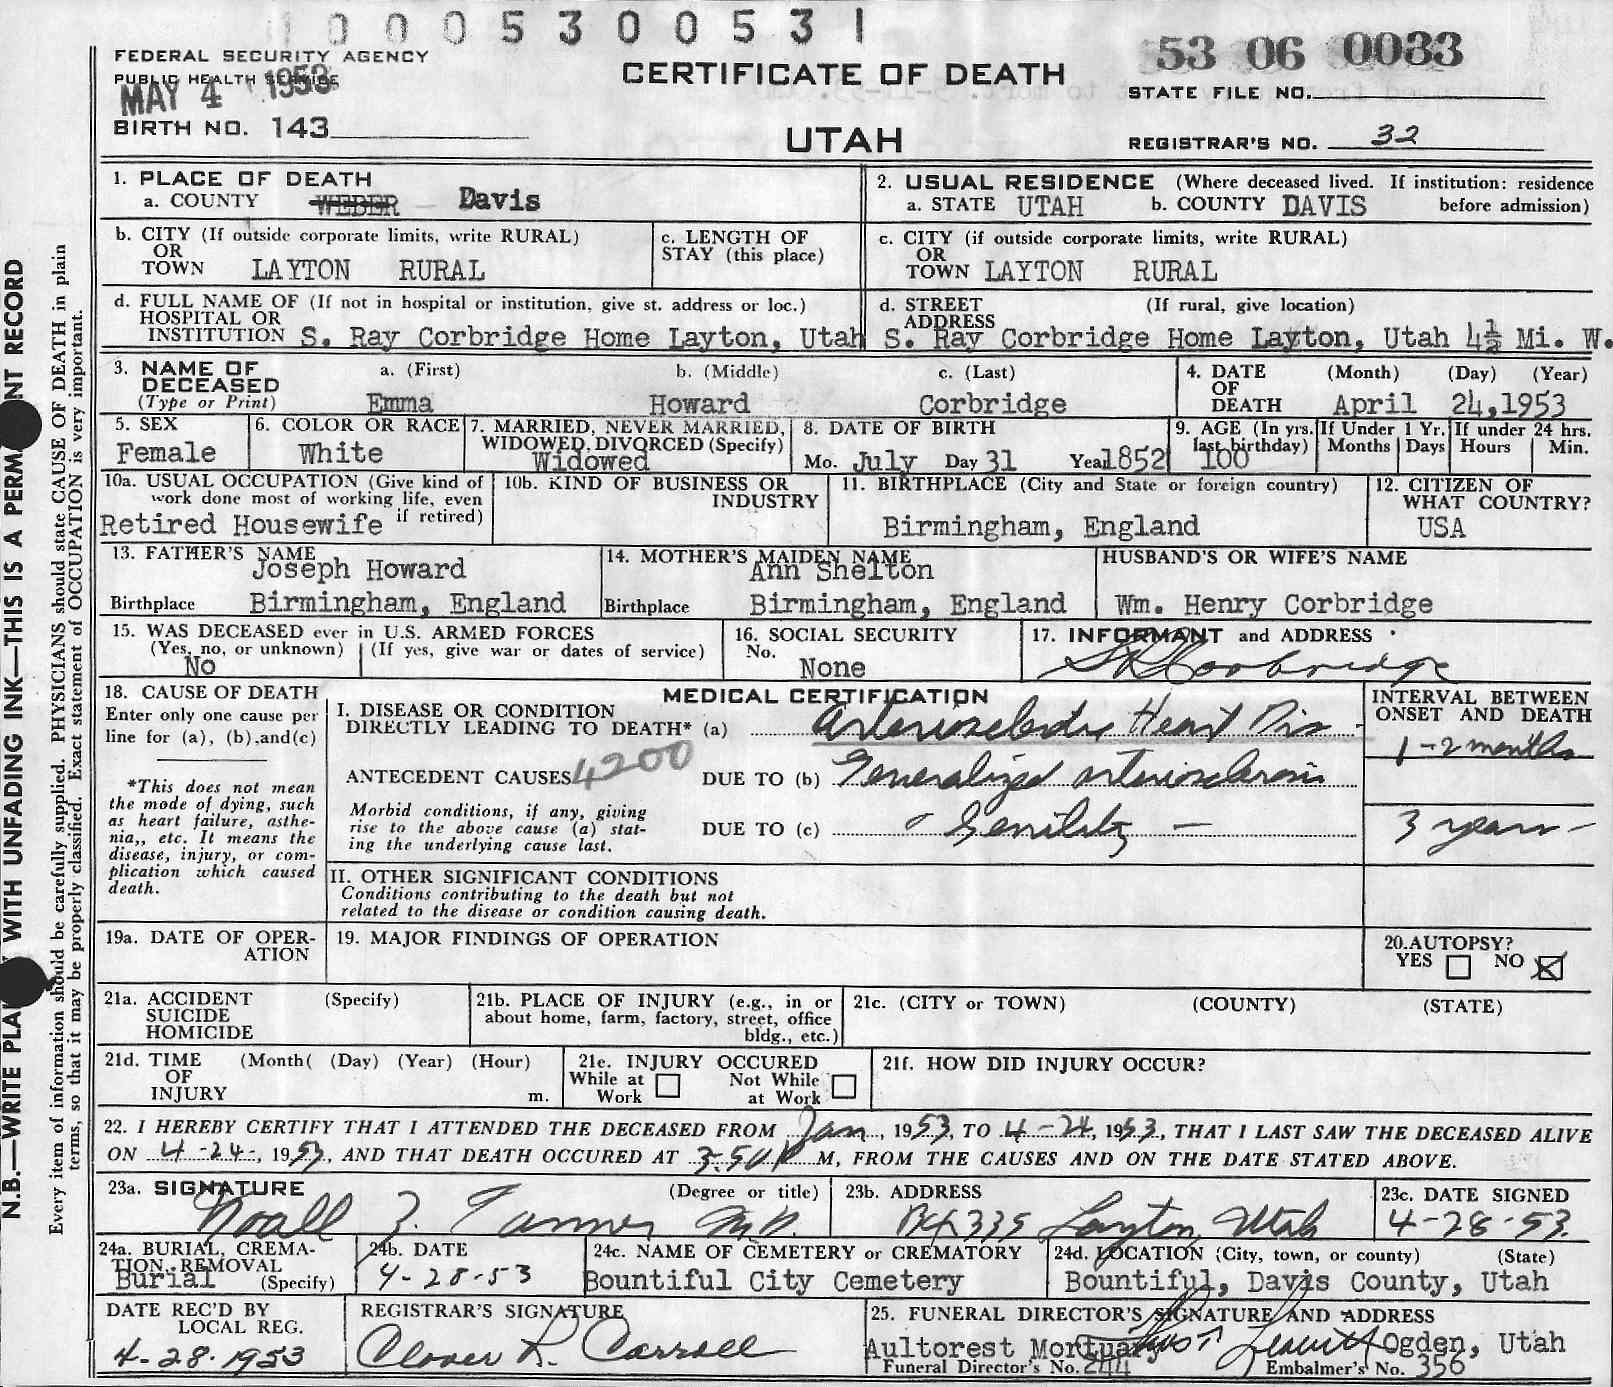 0 0 0 5 3 0 0 5 3 1
FEDERAL SECURITY AGENCY
PUBLIC HEALTH SERVICE
MAY 4 1953
BIRTH NO. 143
CERTIFICATE OF DEATH
UTAH
53 06 0033
STATE FILE NO.
REGISTRAR'S NO. 32
1. PLACE OF DEATH
a. COUNTY WEBER Davis
2. USUAL RESIDENCE (Where deceased lived. If institution: residence before admission)
a. STATE UTAH b. COUNTY DAVIS
b. CITY (If outside corporate limits, write RURAL)
OR
TOWN LAYTON RURAL
c. LENGTH OF
STAY (this place)
c. CITY (if outside corporate limits, write RURAL)
OR
TOWN LAYTON RURAL
d. FULL NAME OF (If not in hospital or institution, give st. address or loc.)
HOSPITAL OR
INSTITUTION S. Ray Corbridge Home Layton, Utah
d. STREET (If rural, give location)
ADDRESS
S. Ray Corbridge Home Layton, Utah 4½ Mi. W.
3. NAME OF
DECEASED
(Type or Print)
a. (First) b. (Middle) c. (Last)
Emma Howard Corbridge
4. DATE (Month) (Day) (Year)
OF
DEATH April 24,1953
5. SEX
Female
6. COLOR OR RACE
White
7. MARRIED, NEVER MARRIED,
WIDOWED, DIVORCED (Specify)
Widowed
8. DATE OF BIRTH
Mo. July Day 31 Year 1852
9. AGE (In yrs.
last birthday)
100
If Under 1 Yr.
Months Days
If under 24 hrs.
Hours Min.
10a. USUAL OCCUPATION (Give kind of
work done most of working life, even
if retired)
Retired Housewife
10b. KIND OF BUSINESS OR
INDUSTRY
11. BIRTHPLACE (City and State or foreign country)
Birmingham, England
12. CITIZEN OF
WHAT COUNTRY?
USA
13. FATHER'S NAME
Joseph Howard
Birthplace Birmingham, England
14. MOTHER'S MAIDEN NAME
Ann Shelton
Birthplace Birmingham, England
HUSBAND'S OR WIFE'S NAME
Wm. Henry Corbridge
15. WAS DECEASED ever in U.S. ARMED FORCES
(Yes, no, or unknown) (If yes, give war or dates of service)
No
16. SOCIAL SECURITY
No.
None
17. INFORMANT and ADDRESS
S R Corbridge
18. CAUSE OF DEATH
Enter only one cause per
line for (a), (b),and(c)
*This does not mean
the mode of dying, such
as heart failure, asthe-
nia,, etc. It means the
disease, injury, or com-
plication which caused
death.
MEDICAL CERTIFICATION
I. DISEASE OR CONDITION
DIRECTLY LEADING TO DEATH* (a) Arteriosclerotic Heart Dis
ANTECEDENT CAUSES 4200
DUE TO (b) Generalized arteriosclerosis
Morbid conditions, if any, giving
rise to the above cause (a) stat-
ing the underlying cause last.
DUE TO (c) Senility
INTERVAL BETWEEN
ONSET AND DEATH
1-2 months
3 years-
II. OTHER SIGNIFICANT CONDITIONS
Conditions contributing to the death but not
related to the disease or condition causing death.
19a. DATE OF OPER-
ATION
19. MAJOR FINDINGS OF OPERATION
20.AUTOPSY?
YES NO
21a. ACCIDENT (Specify)
SUICIDE
HOMICIDE
21b. PLACE OF INJURY (e.g., in or
about home, farm, factory, street, office
bldg., etc.)
21c. (CITY or TOWN) (COUNTY) (STATE)
21d. TIME (Month( (Day) (Year) (Hour)
OF
INJURY m.
21e. INJURY OCCURED
While at Work Not While at Work
21f. HOW DID INJURY OCCUR?
22. I HEREBY CERTIFY THAT I ATTENDED THE DECEASED FROM Jan, 1953, TO 4-24, 1953, THAT I LAST SAW THE DECEASED ALIVE
ON 4-24-, 1953, AND THAT DEATH OCCURED AT 3:50 P M, FROM THE CAUSES AND ON THE DATE STATED ABOVE.
23a. SIGNATURE (Degree or title)
Noall Z. Tanner M.D.
23b. ADDRESS
Bx 335 Layton, Utah
23c. DATE SIGNED
4-28-53.
24a. BURIAL, CREMA-
TION, REMOVAL
Burial (Specify)
24b. DATE
4-28-53
24c. NAME OF CEMETERY or CREMATORY
Bountiful City Cemetery
24d. LOCATION (City, town, or county) (State)
Bountiful, Davis County, Utah
DATE REC'D BY
LOCAL REG.
4-28-1953
REGISTRAR'S SIGNATURE
Clover R. Carroll
25. FUNERAL DIRECTOR'S SIGNATURE AND ADDRESS
Aultorest Mortuary Ogden, Utah
Funeral Director's No. 244 Embalmer's No. 356
N.B.—WRITE PLA WITH UNFADING INK—THIS IS A PERM NT RECORD
Every item of information should be carefully supplied. PHYSICIANS should state CAUSE OF DEATH in plain
terms, so that it may be properly classified. Exact statement of OCCUPATION is very important.